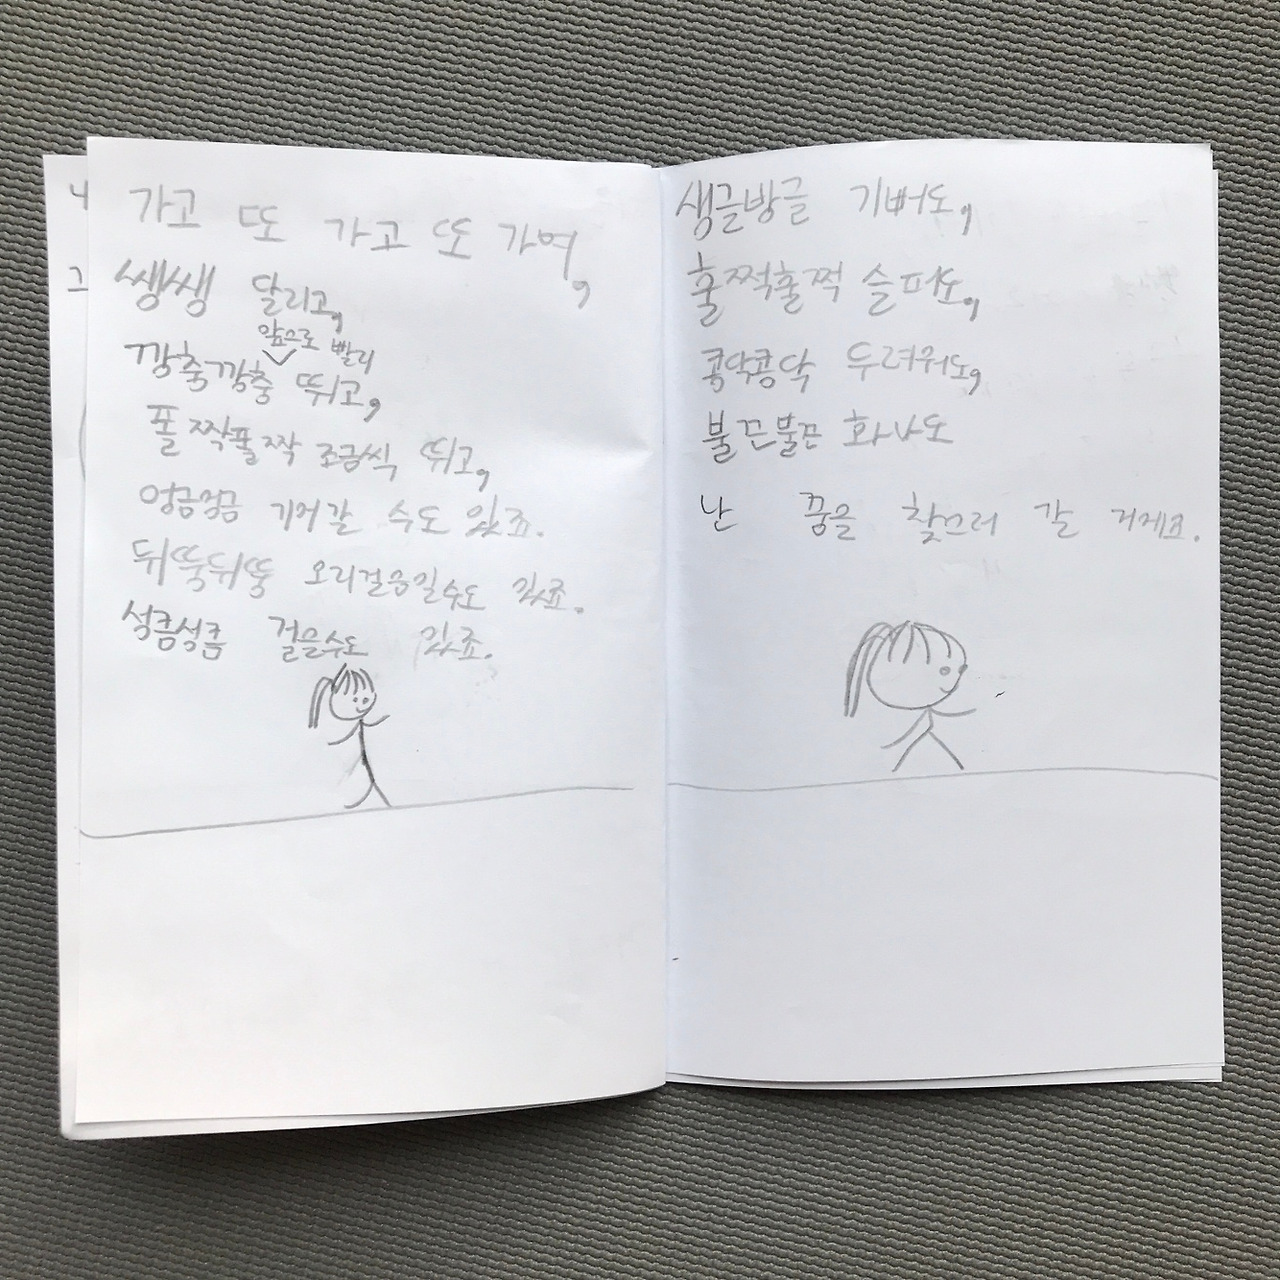 가고 또 가고 또 가여,
쌩쌩 달리고,
앞으로 빨리
깡충깡충 뛰고,
폴짝폴짝 조금씩 뛰고,
엉금엉금 기어갈 수도 있죠.
뒤뚱뒤뚱 오리걸음일수도 있죠.
성큼성큼 걸을수도 있죠.
생글방글 기뻐도,
훌쩍훌쩍 슬퍼도,
콩닥콩닥 두려워도,
불끈불끈 화나도
난 꿈을 찾으러 갈 거예요.